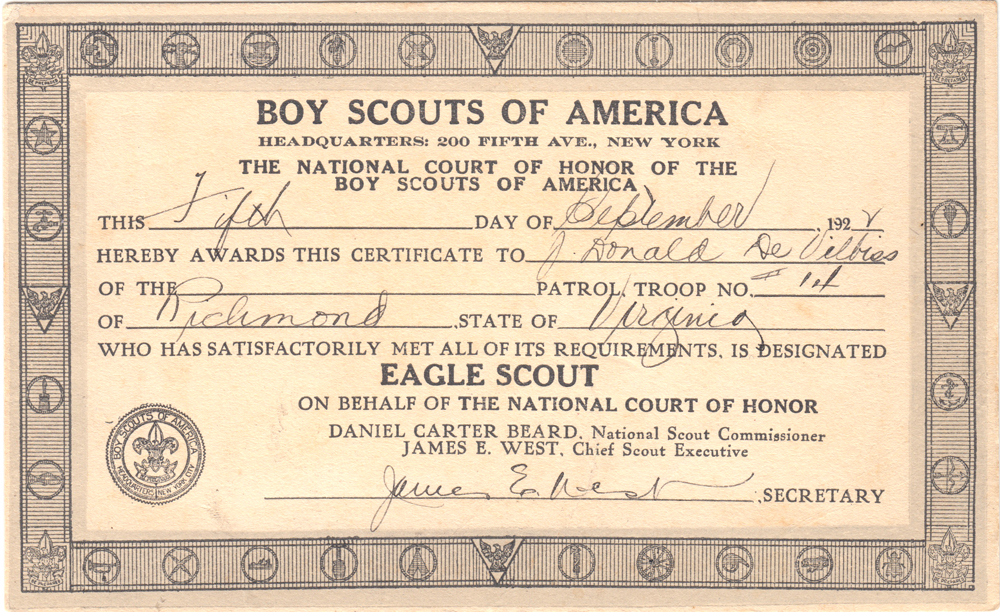 BOY SCOUTS OF AMERICA
HEADQUARTERS: 200 FIFTH AVE., NEW YORK
THE NATIONAL COURT OF HONOR OF THE
BOY SCOUTS OF AMERICA
THIS Fifth DAY OF September, 192
HEREBY AWARDS THIS CERTIFICATE TO J. Donald De Vilbiss
OF THE PATROL, TROOP NO. # 14
OF Richmond, STATE OF Virginia
WHO HAS SATISFACTORILY MET ALL OF ITS REQUIREMENTS, IS DESIGNATED
EAGLE SCOUT
ON BEHALF OF THE NATIONAL COURT OF HONOR
DANIEL CARTER BEARD, National Scout Commissioner
JAMES E. WEST, Chief Scout Executive
BOY SCOUTS OF AMERICA
HEADQUARTERS: NEW YORK CITY
James E. West, SECRETARY